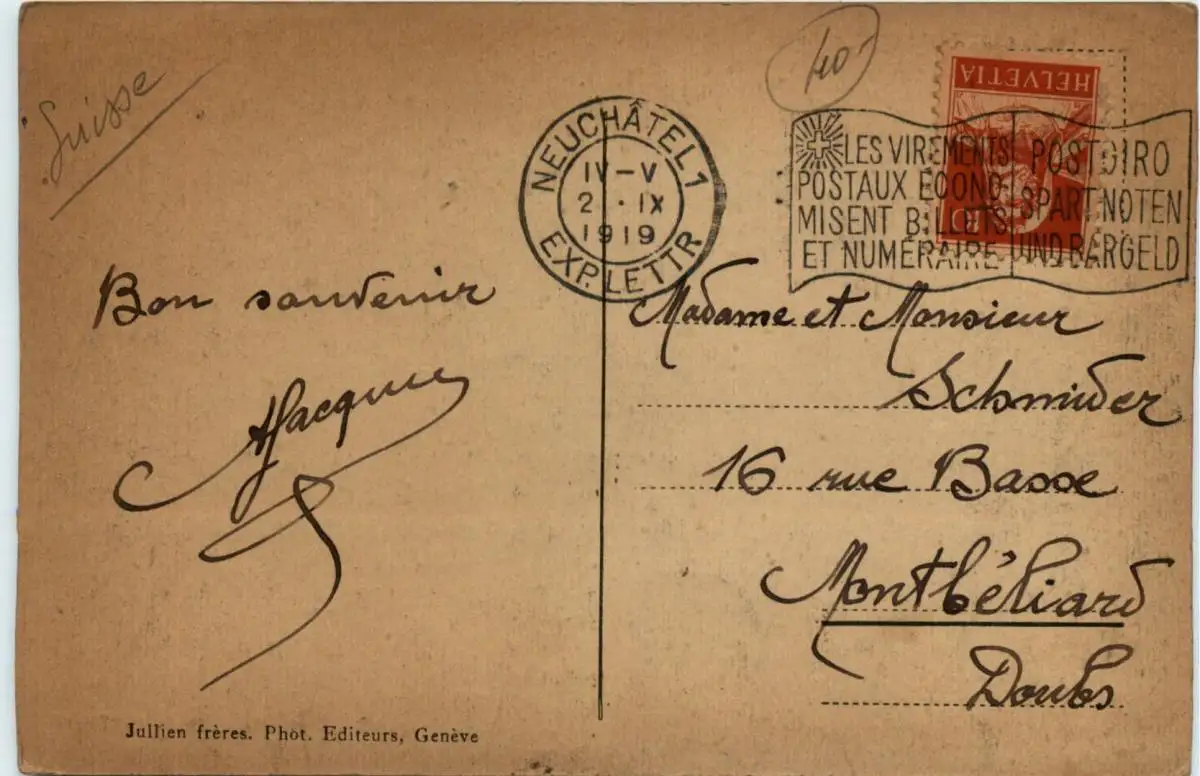 Suisse
40
HELVETIA
10
NEUCHÂTEL 1
IV–V
2 · IX
1919
EXP. LETTR
LES VIREMENTS
POSTAUX ECONO-
MISENT BILLETS
ET NUMÉRAIRE
POSTGIRO
SPART NOTEN
UND BARGELD
Bon souvenir
AJacques
Madame et Monsieur
Schmider
16 rue Basse
Montbéliard
Doubs
Jullien frères. Phot. Editeurs, Genève